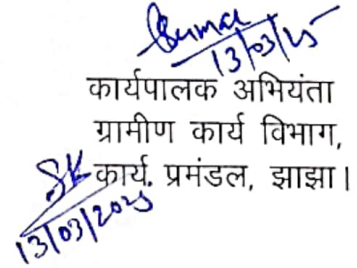 Kumar
13/03/25
कार्यपालक अभियंता
ग्रामीण कार्य विभाग,
कार्य प्रमंडल, झाझा।
SK
13/03/2025